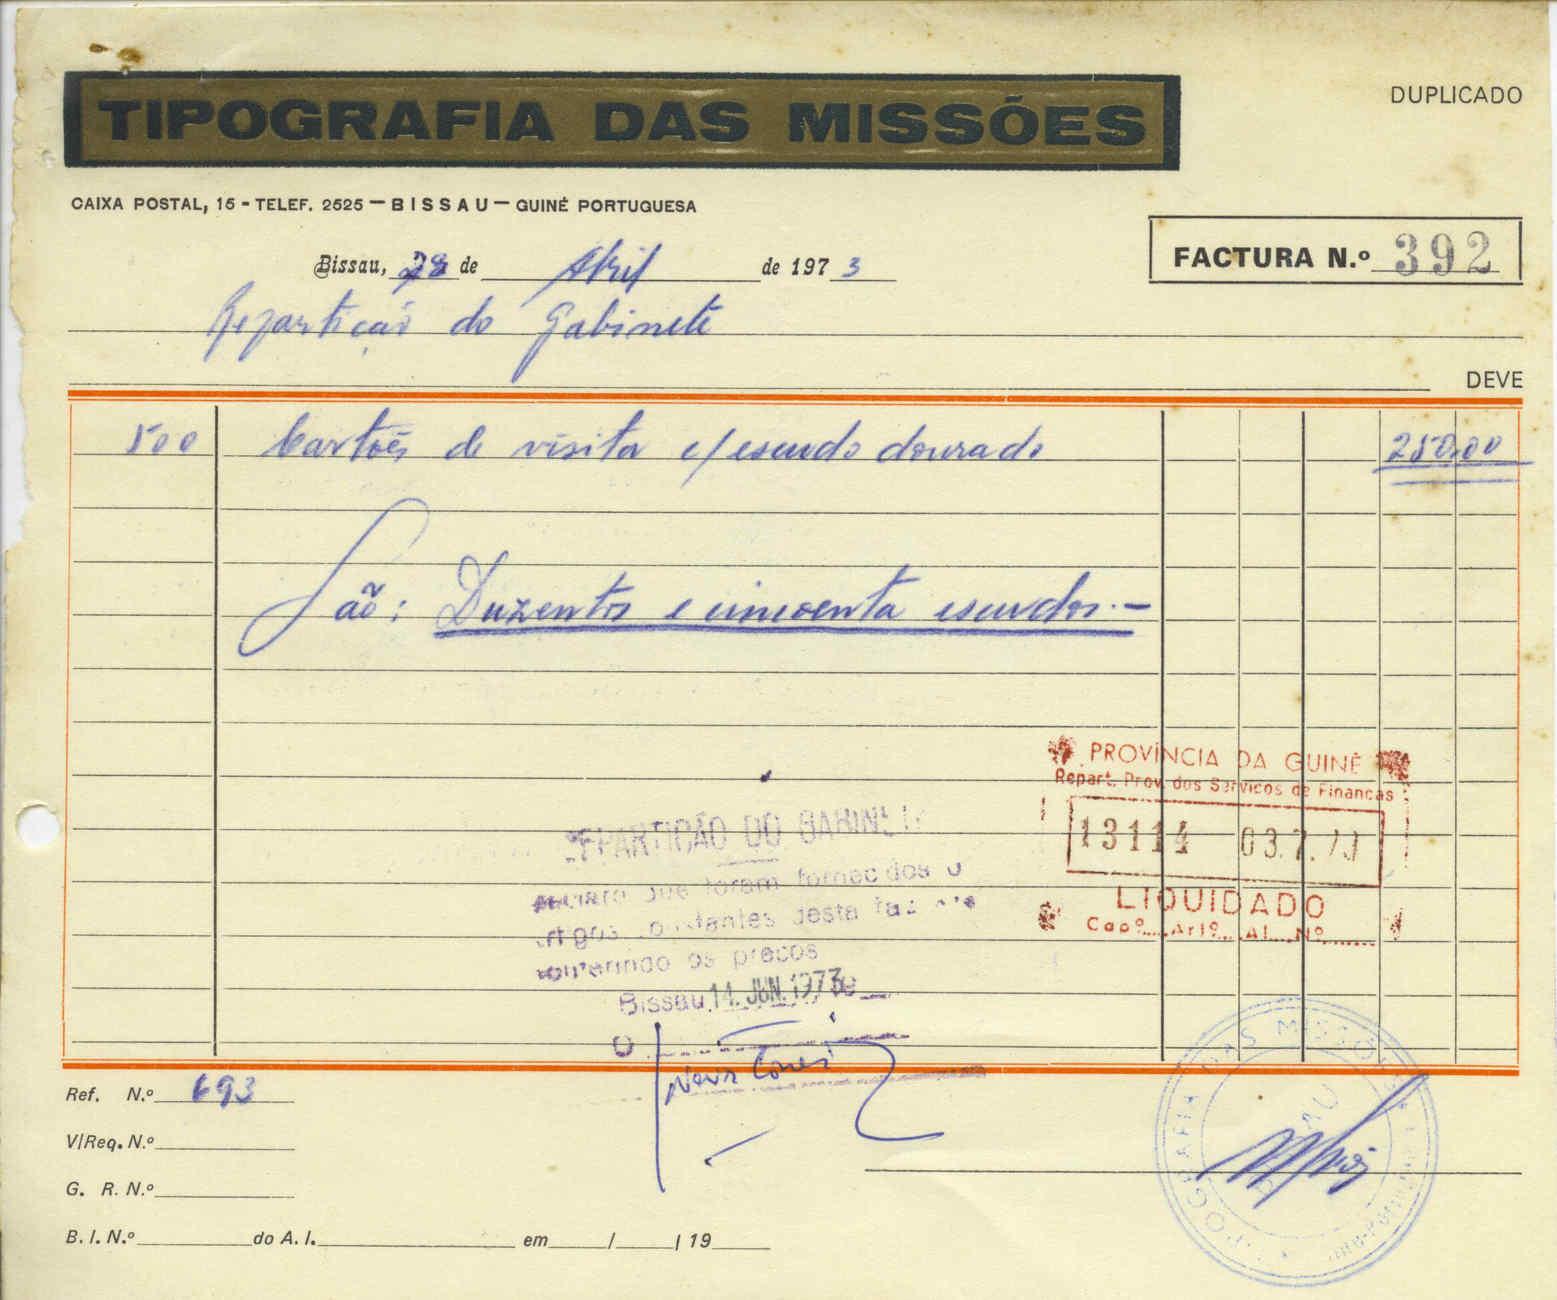 TIPOGRAFIA DAS MISSÕES
DUPLICADO
CAIXA POSTAL, 15 - TELEF. 2525 — BISSAU — GUINÉ PORTUGUESA
FACTURA N.º 392
Bissau, 28 de Abril de 1973
Repartição do Gabinete
DEVE
500 Cartões de visita c/escudo dourado 250,00
São: Duzentos e cincoenta escudos.—
PROVÍNCIA DA GUINÉ
Repart. Prov. dos Serviços de Finanças
13114 03.7.73
LIQUIDADO
Capº. Artº. Al. Nº
REPARTIÇÃO DO GABINETE
que foram fornecidos o
artigos constantes desta
conferindo os preços
Bissau, 14. JUN. 1973
O
Ref. N.º 693
V/Req. N.º
G. R. N.º
B. I. N.º do A. I. em / / 19
TIPOGRAFIA DAS MISSÕES
BISSAU